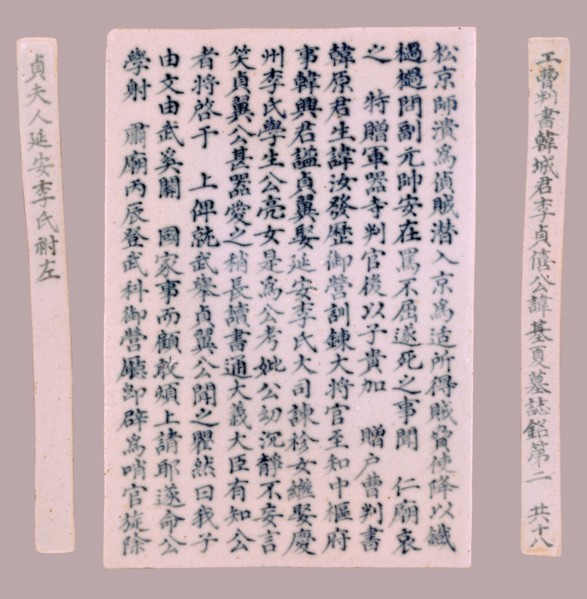 工曹判書韓城君李貞僖公諱基夏墓誌銘第二 共十八
松京師潰爲偵賊潛入京爲适所得賊脅使降以鐵
檛檛問副元帥安在罵不屈遂死之事聞 仁廟哀
之 特贈軍器寺判官後以子貴加 贈戶曹判書
韓原君生諱汝發歷御營訓鍊大將官至知中樞府
事韓興君諡貞翼娶延安李氏大司諫袗女繼娶慶
州李氏學生公亮女是爲公考妣公幼沉靜不妄言
笑貞翼公甚器愛之稍長讀書通大義大臣有知公
者將啓于 上俾就武擧貞翼公聞之瞿然曰我子
由文由武奚關 國家事而顧敢煩上請耶遂命公
學射 肅廟丙辰登武科御營廳卽辟爲哨官旋除
貞夫人延安李氏祔左